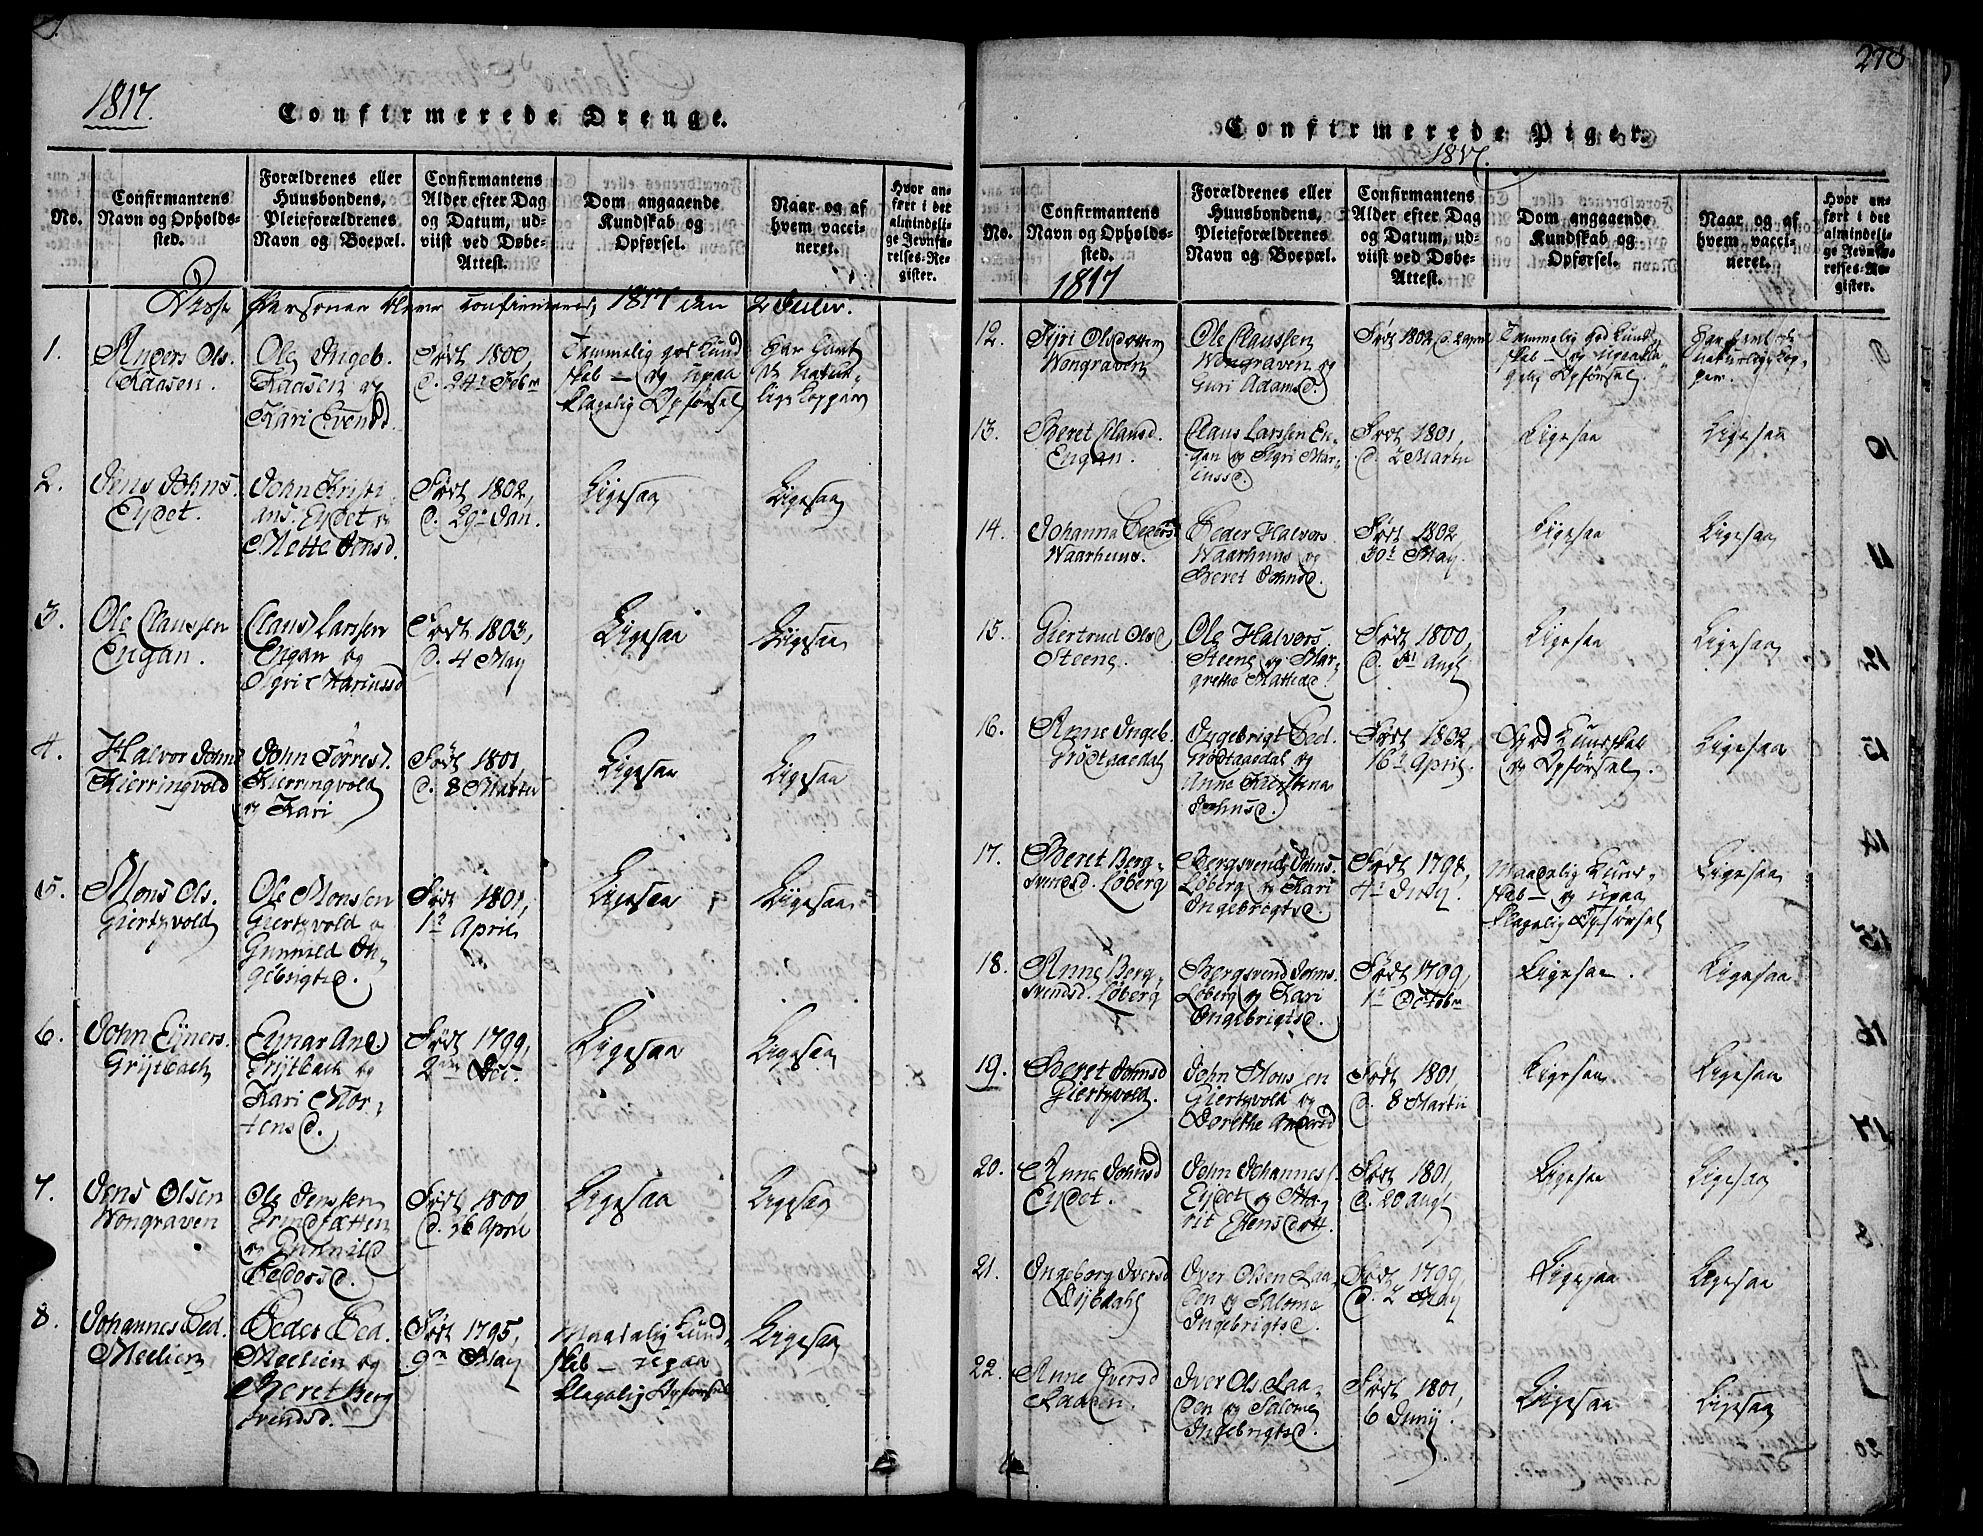 1817.
Confirmerede Drenge.
No.
Confirmantens
Navn og Opholds-
sted.
Forældrenes eller
Huusbondens,
Pleieforældrenes
Navn og Boepæl.
Confirmantens
Alder efter Dag
og Datum, ud-
viist ved Døbe-
Attest.
Dom angaaende
Kundskab og
Opførsel.
Naar og af
hvem vacci-
neret.
Hvor an-
ført i det
almindeli-
ge Jevnfø-
relses-Re-
gister.
Personer bleve confirmerede 1817 den
1.
Anders Ols.
Kaasen.
Ole Ingeb.
Kaasen og
Kari Evensd.
Født 1800
d. 24de Febr
Temmelig god Kund
skab — og upaa
klagelig Opførsel
har havt
de natur-
lige Kopper
2.
Jens Johns.
Eydet.
John Kristi
ans. Eydet og
Mette Jensd.
Født 1802,
d. 29de Jan.
Ligesaa
Ligesaa
3.
Ole Claussen
Engan.
Claus Larssen
Engan og
Sigri Mariussd
Født 1803,
d. 4 May
Ligesaa
Ligesaa
4.
Halvor Johns
Kierringvold
John Torres.
Kierringvold
og Kari
Født 1801,
d. 8 Martii
Ligesaa
Ligesaa
5.
Mons Ols.
Giertzvold
Ole Monsen
Giertzvold og
Gunnild In-
gebrigtsd.
Født 1801,
1te April
Ligesaa
Ligesaa
6.
John Eyners.
Grijtbach
Eynar And
Grijtbach og
Kari Mor-
tensd.
Født 1799,
2den Dec.
Ligesaa
Ligesaa
7.
Jens Olsen
Wongraven
Ole Jenssen
Grindsætten
og Gunnild
Pedersd.
Født 1800
d. 16 April
Ligesaa
Ligesaa
8.
Johannes Ped.
Meelien
Peder Ped.
Meelien og
Beret Berg
svendsd.
Født 1795,
9de May
Maadelig Kund-
skab — upaa
klagelig Opførsel
Ligesaa
270
Confirmerede Piger.
1817.
No.
Confirmantens
Navn og Opholds-
sted.
1817
Forældrenes eller
Huusbondens,
Pleieforældrenes
Navn og Boepæl.
Confirmantens
Alder efter Dag
og Datum, ud-
viist ved Døbe-
Attest.
Dom angaaende
Kundskab og
Opførsel.
Naar og af
hvem vacci-
neret.
Hvor an-
ført i det
almindeli-
ge Jevnfø-
relses-Re-
gister.
12.
Siri Olsdotter
Wongraven
Ole Claussen
Wongraven og
Guri Adamsd.
Født 1802
Temmelig god Kund
skab — og upaakla
gelig Opførsel.
har havt de
naturlige Kop-
per.
13.
Beret Clausd.
Engan.
Claus Larssen En-
gan og Sigri Mar-
iussd.
Født 1801,
d. 2 Martii
Ligesaa
Ligesaa
14.
Johanna Peders
Waarhuus.
Peder Halvors.
Waarhuus og
Beret Johnsd.
Født 1802
30te May.
Ligesaa
Ligesaa
15.
Giertrud Olsd
Steene.
Ole Halvors.
Steene og Mar-
grethe
Født 1800,
Augt
Ligesaa
Ligesaa
16.
Anne Ingeb.
Grødtaaedal
Ingebrigt Ped.
Grødtaaedal og
Anne Kierstena
Johnsd.
Født 1802,
16de April
God Kundskab
og Opførsel.
Ligesaa
17.
Beret Berg-
svendsd. Løberg
Bergsvend Johns.
Løberg og Kari
Ingebrigtsd.
Født 1798,
4de July.
Maadelig Kund-
skab — og upaa
klagelig Opførsel
Ligesaa
18.
Anne Berg-
svendsd. Løberg
Bergsvend Johns.
Løberg og Kari
Ingebrigtsd.
Født 1799,
1te Octobr
Ligesaa.
Ligesaa
19.
Beret Johnsd
Giertzvold.
John Monssen
Giertzvold og
Dorethe Andersd
Født 1801,
d. 8 Martii
Ligesaa
Ligesaa
20.
Anne Johnsd
Eydet.
John Johannes.
Eydet og Ma-
rit Estensdott.
Født 1801,
d. 20 Augt
Ligesaa
Ligesaa
21.
Ingeborg Iversd
Iver Olsen Raa-
den og Salome
Ingebrigtsd.
Født 1799,
d. 2 May
Ligesaa
Ligesaa
22.
Anne Iversd
Raaden.
Iver Ols. Raa-
den og Salome
Ingebrigtsd.
Født 1801,
6 Junij.
Ligesaa
Ligesaa